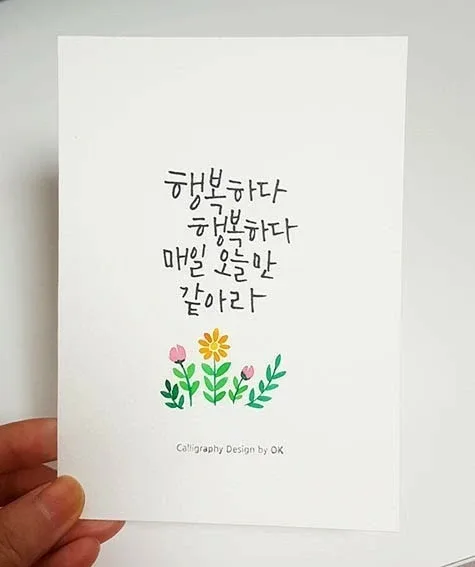 행복하다
행복하다
매일 오늘만
같아라
Calligraphy Design by OK